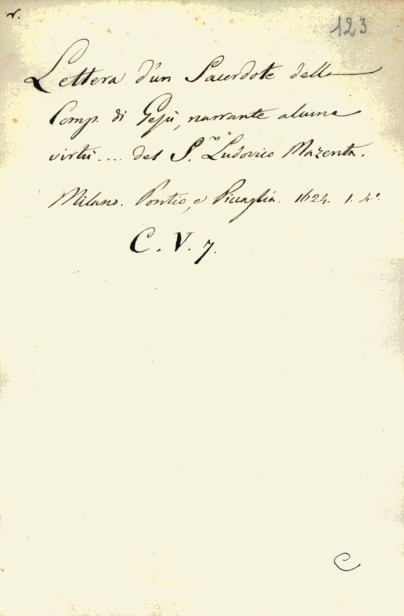 v.
123
Lettera d'un Sacerdote della
Comp. di Gesù, narrante alcune
virtù .... del S.r Ludovico Mazenta.
Milano. Pontio, e Piccaglia. 1624. 1. 4°
C. V. 7.
C